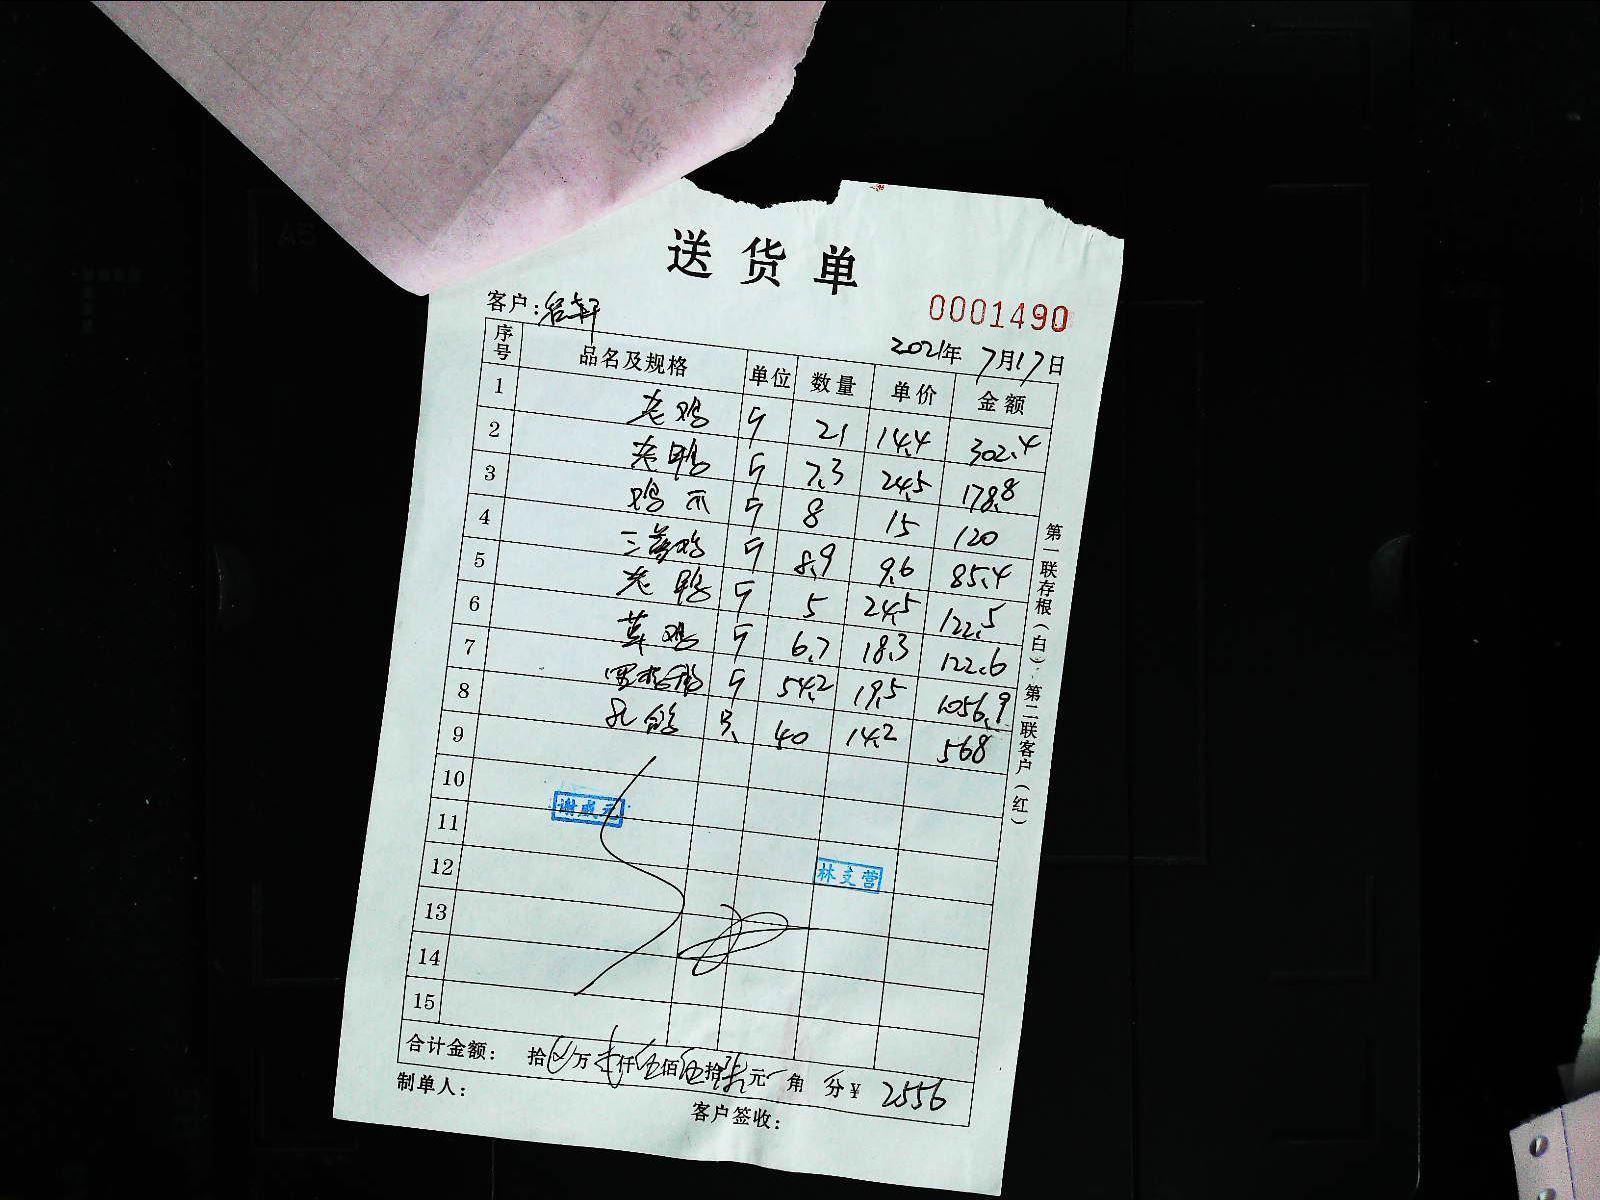 送货单
0001490
客户：名轩
2021年 7月17日
序号 品名及规格 单位 数量 单价 金额
1 老鸡 斤 21 14.4 302.4
2 老鸭 斤 7.3 24.5 178.8
3 鸡爪 斤 8 15 120
4 三黄鸡 斤 8.9 9.6 85.4
5 老鸭 斤 5 24.5 122.5
6 草鸡 斤 6.7 18.3 122.6
7 斤 54.2 19.5 1056.9
8 乳鸽 只 40 14.2 568
9
10
11
12
13
14
15
谢成元
林支营
合计金额： 拾 万 仟伍佰伍拾陆元 角 分￥ 2556
制单人：
客户签收：
第一联存根（白）；第二联客户（红）